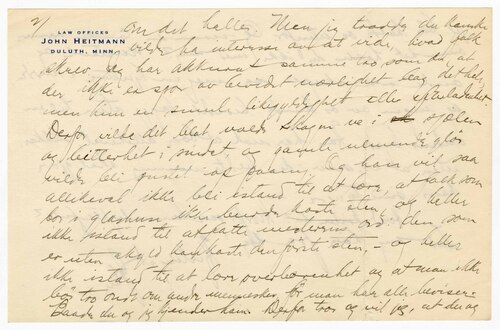 2/
LAW OFFICES
JOHN HEITMANN
DULUTH, MINN.
om det halle. Men jeg trodde du kanske
vilde ha interesse av at vide, hvad folk
skrev. Jeg har akkurat samme tro som du, at
der ikke er spor av bevidst uærlighet slag det hele,
men kun en smule likegyldighet eller efterlatenhet
Derfor vilde det blot volde Skogen ve i sjælen
og bitterhet i sindet og gamle ulmende glør
vilde bli pustet op paany. Og han vil saa
allikevel ikke bli istand til at lære, at folk som
bor i glashus ikke burde kaste sten, og heller
ikke istand til at fatte mesterens ord: den som
er uten skyld han kaste den første sten, – og heller
ikke istand til at lære overbærenhet og at man ikke
bør tro ondt om andre mennesker, før man har alle beviser.
Baade du og jeg kjender ham. Derfor tror og vil jeg, at du og